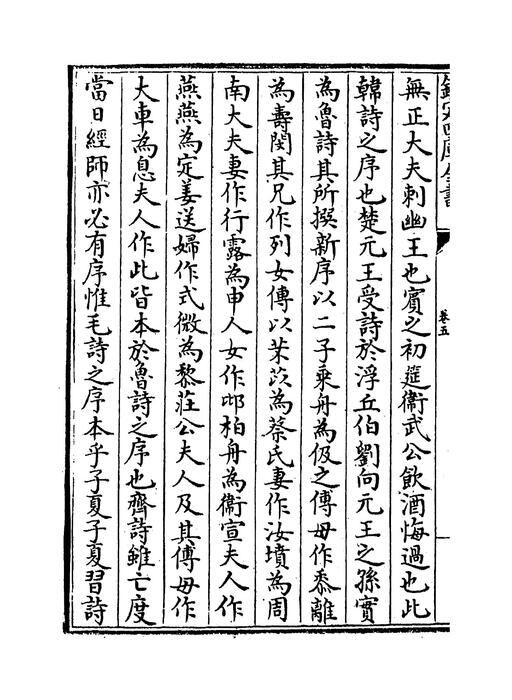 欽定四庫全書
卷五
無正大夫刺幽王也賓之初筵衛武公飲酒悔過也此
韓詩之序也楚元王受詩於浮丘伯劉向元王之孫實
為魯詩其所撰新序以二子乘舟為伋之傅母作黍離
為壽閔其兄作列女傳以芣苡為蔡氏妻作汝墳為周
南大夫妻作行露為申人女作邶柏舟為衛宣夫人作
燕燕為定姜送婦作式微為黎莊公夫人及其傅母作
大車為息夫人作此皆本於魯詩之序也齊詩雖亡度
當日經師亦必有序惟毛詩之序本乎子夏子夏習詩